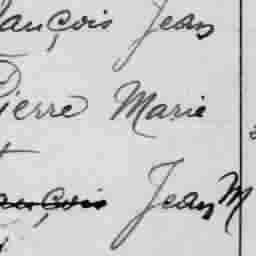 ançois Jean
Pierre Marie
ançois Jean M